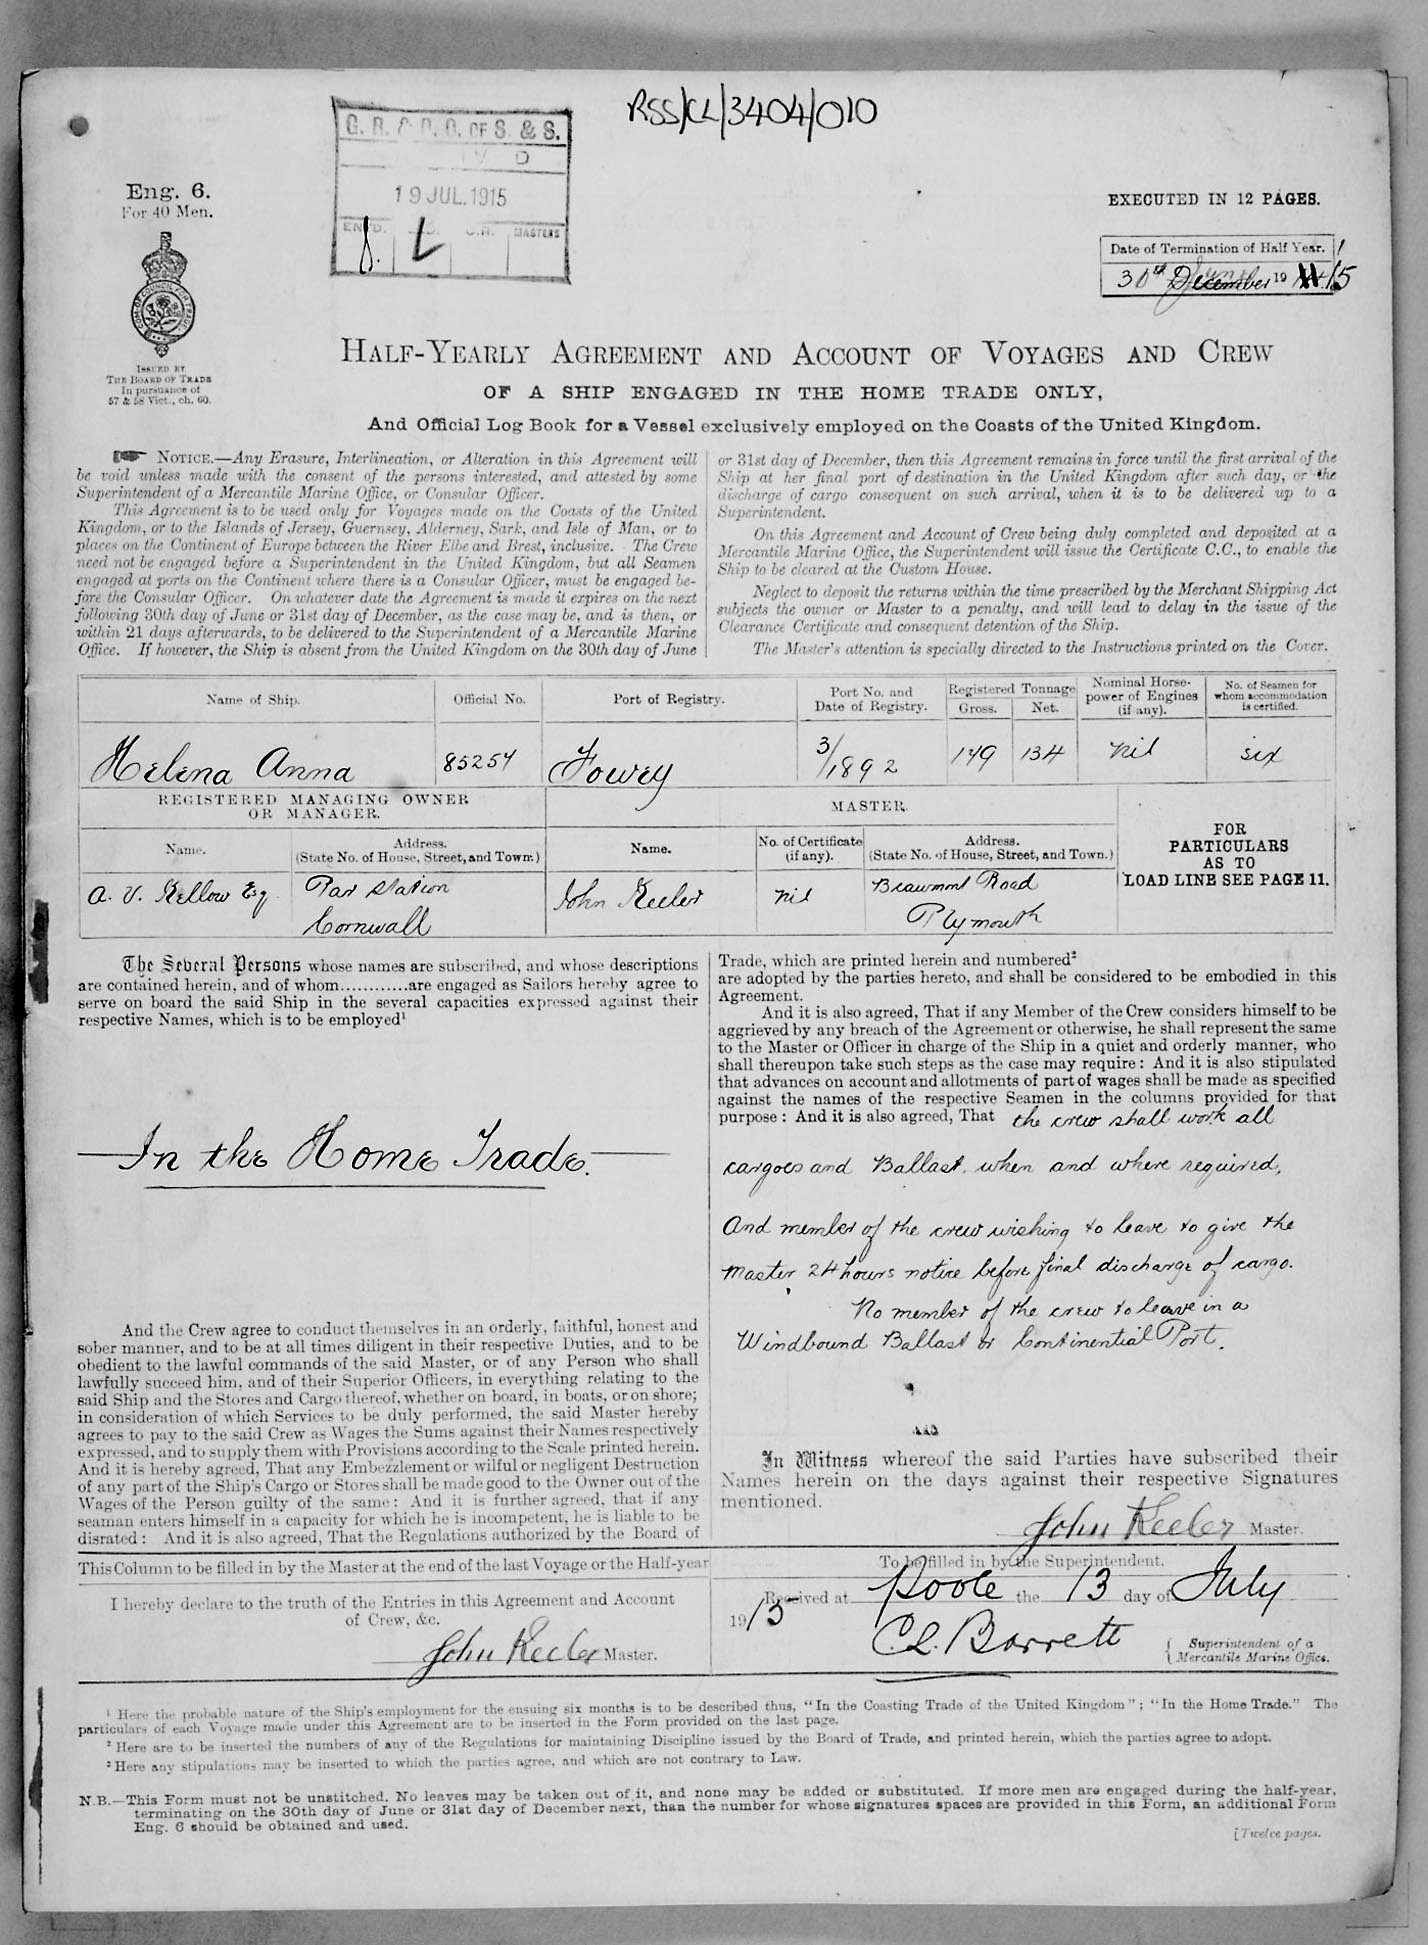 RSS/CL/3404/010
G. R. & R. O. OF S. & S.
19 JUL.1915
ENT'D.
MASTERS
Eng. 6.
For 40 Men.
ISSUED BY
THE BOARD OF TRADE
In pursuance of
57 & 58 Vict., ch. 60.
EXECUTED IN 12 PAGES.
Date of Termination of Half Year.
30th December June 19 15
HALF-YEARLY AGREEMENT AND ACCOUNT OF VOYAGES AND CREW
OF A SHIP ENGAGED IN THE HOME TRADE ONLY,
And Official Log Book for a Vessel exclusively employed on the Coasts of the United Kingdom.
NOTICE.—Any Erasure, Interlineation, or Alteration in this Agreement will
be void unless made with the consent of the persons interested, and attested by some
Superintendent of a Mercantile Marine Office, or Consular Officer.
This Agreement is to be used only for Voyages made on the Coasts of the United
Kingdom, or to the Islands of Jersey, Guernsey, Alderney, Sark, and Isle of Man, or to
places on the Continent of Europe between the River Elbe and Brest, inclusive. The Crew
need not be engaged before a Superintendent in the United Kingdom, but all Seamen
engaged at ports on the Continent where there is a Consular Officer, must be engaged be-
fore the Consular Officer. On whatever date the Agreement is made it expires on the next
following 30th day of June or 31st day of December, as the case may be, and is then, or
within 21 days afterwards, to be delivered to the Superintendent of a Mercantile Marine
Office. If however, the Ship is absent from the United Kingdom on the 30th day of June
or 31st day of December, then this Agreement remains in force until the first arrival of the
Ship at her final port of destination in the United Kingdom after such day, or the
discharge of cargo consequent on such arrival, when it is to be delivered up to a
Superintendent.
On this Agreement and Account of Crew being duly completed and deposited at a
Mercantile Marine Office, the Superintendent will issue the Certificate C.C., to enable the
Ship to be cleared at the Custom House.
Neglect to deposit the returns within the time prescribed by the Merchant Shipping Act
subjects the owner or Master to a penalty, and will lead to delay in the issue of the
Clearance Certificate and consequent detention of the Ship.
The Master's attention is specially directed to the Instructions printed on the Cover.
Name of Ship. Official No. Port of Registry. Port No. and Date of Registry. Registered Tonnage Gross. Net. Nominal Horse-power of Engines (if any). No. of Seamen for whom accommodation is certified.
Helena Anna 85254 Fowey 3/1892 149 134 Nil six
REGISTERED MANAGING OWNER
OR MANAGER.
MASTER.
Name. Address. (State No. of House, Street, and Town.) Name. No. of Certificate (if any). Address. (State No. of House, Street, and Town.)
FOR
PARTICULARS
AS TO
LOAD LINE SEE PAGE 11.
A. V. Kellow Esq Par Station John Keeler Nil Beaumont Road
Cornwall Plymouth
The Several Persons whose names are subscribed, and whose descriptions
are contained herein, and of whom............are engaged as Sailors hereby agree to
serve on board the said Ship in the several capacities expressed against their
respective Names, which is to be employed¹
In the Home Trade.
And the Crew agree to conduct themselves in an orderly, faithful, honest and
sober manner, and to be at all times diligent in their respective Duties, and to be
obedient to the lawful commands of the said Master, or of any Person who shall
lawfully succeed him, and of their Superior Officers, in everything relating to the
said Ship and the Stores and Cargo thereof, whether on board, in boats, or on shore;
in consideration of which Services to be duly performed, the said Master hereby
agrees to pay to the said Crew as Wages the Sums against their Names respectively
expressed, and to supply them with Provisions according to the Scale printed herein.
And it is hereby agreed, That any Embezzlement or wilful or negligent Destruction
of any part of the Ship's Cargo or Stores shall be made good to the Owner out of the
Wages of the Person guilty of the same: And it is further agreed, that if any
seaman enters himself in a capacity for which he is incompetent, he is liable to be
disrated: And it is also agreed, That the Regulations authorized by the Board of
Trade, which are printed herein and numbered²
are adopted by the parties hereto, and shall be considered to be embodied in this
Agreement.
And it is also agreed, That if any Member of the Crew considers himself to be
aggrieved by any breach of the Agreement or otherwise, he shall represent the same
to the Master or Officer in charge of the Ship in a quiet and orderly manner, who
shall thereupon take such steps as the case may require: And it is also stipulated
that advances on account and allotments of part of wages shall be made as specified
against the names of the respective Seamen in the columns provided for that
purpose: And it is also agreed, That the crew shall work all
cargoes and Ballast, when and where required,
And member of the crew wishing to leave to give the
Master 24 hours notice before final discharge of cargo.
No member of the crew to leave in a
Windbound Ballast or Continential Port.
In Witness whereof the said Parties have subscribed their
Names herein on the days against their respective Signatures
mentioned.
John Keeler Master.
This Column to be filled in by the Master at the end of the last Voyage or the Half-year
I hereby declare to the truth of the Entries in this Agreement and Account
of Crew, &c.
John Keeler Master.
To be filled in by the Superintendent.
Received at Poole the 13 day of July
1915
C. L. Barrett
Superintendent of a
Mercantile Marine Office.
¹ Here the probable nature of the Ship's employment for the ensuing six months is to be described thus, "In the Coasting Trade of the United Kingdom"; "In the Home Trade." The
particulars of each Voyage made under this Agreement are to be inserted in the Form provided on the last page.
² Here are to be inserted the numbers of any of the Regulations for maintaining Discipline issued by the Board of Trade, and printed herein, which the parties agree to adopt.
³ Here any stipulations may be inserted to which the parties agree, and which are not contrary to Law.
N.B.—This Form must not be unstitched. No leaves may be taken out of it, and none may be added or substituted. If more men are engaged during the half-year,
terminating on the 30th day of June or 31st day of December next, than the number for whose signatures spaces are provided in this Form, an additional Form
Eng. 6 should be obtained and used.
[Twelve pages.